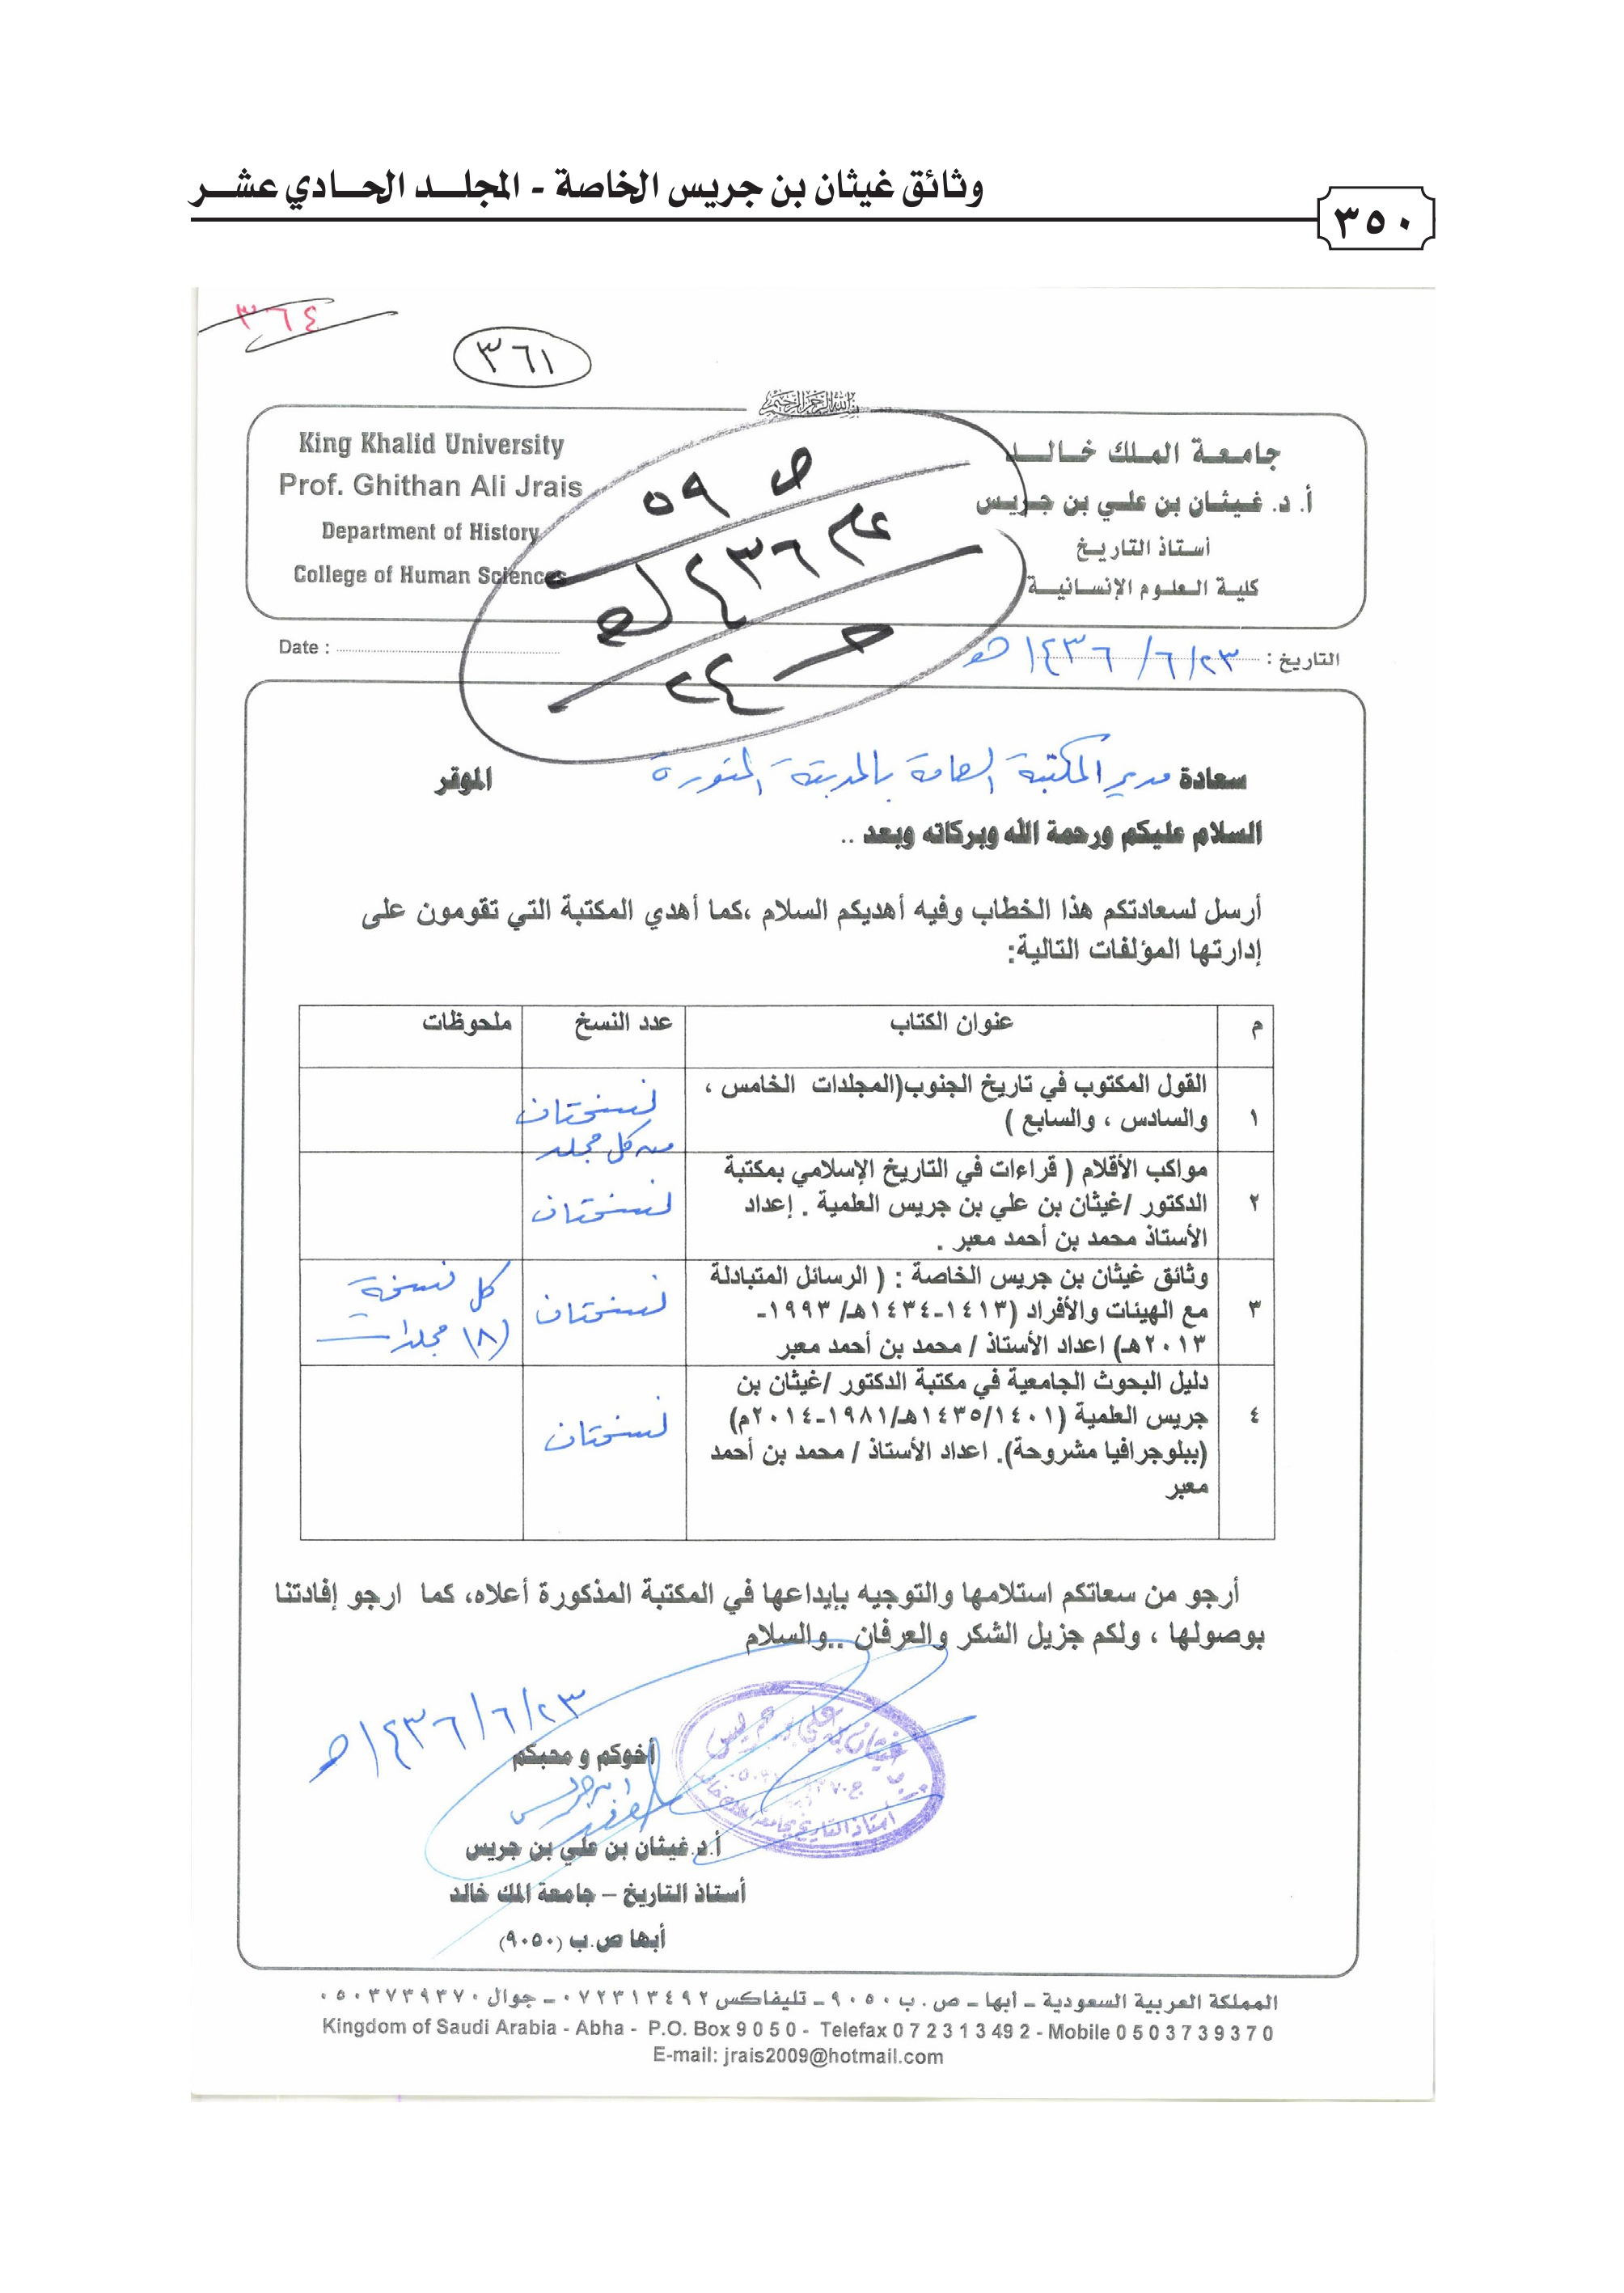 وثائق غيثان بن جريس الخاصة - المجلد الحادي عشر
٣٥٠
٣٦٤
٣٦١
بسم الله الرحمن الرحيم
King Khalid University
Prof. Ghithan Ali Jrais
Department of History
College of Human Sciences
جامعة الملك خالد
أ. د. غيثان بن علي بن جريس
أستاذ التاريخ
كلية العلوم الإنسانية
ص ٥٩
عام ١٤٣٦هـ
ح ٢٤
Date :
التاريخ : ٢٣/٦/١٤٣٦هـ
سعادة مدير المكتبة العامة بالمدينة المنورة الموقر
السلام عليكم ورحمة الله وبركاته وبعد ..
أرسل لسعادتكم هذا الخطاب وفيه أهديكم السلام ،كما أهدي المكتبة التي تقومون على
إدارتها المؤلفات التالية:
م عنوان الكتاب عدد النسخ ملحوظات
١ القول المكتوب في تاريخ الجنوب(المجلدات الخامس ،
والسادس ، والسابع )
نسختان
من كل مجلد
٢ مواكب الأقلام ( قراءات في التاريخ الإسلامي بمكتبة
الدكتور /غيثان بن علي بن جريس العلمية . إعداد
الأستاذ محمد بن أحمد معبر .
نسختان
٣ وثائق غيثان بن جريس الخاصة : ( الرسائل المتبادلة
مع الهيئات والأفراد (١٤١٣-١٤٣٤هـ/ ١٩٩٣-
٢٠١٣هـ) اعداد الأستاذ / محمد بن أحمد معبر
نسختان
كل نسخة
(٨) مجلدات
٤ دليل البحوث الجامعية في مكتبة الدكتور /غيثان بن
جريس العلمية (١٤٠١/١٤٣٥هـ/١٩٨١-٢٠١٤م)
(ببلوجرافيا مشروحة). اعداد الأستاذ / محمد بن أحمد
معبر
نسختان
أرجو من سعاتكم استلامها والتوجيه بإيداعها في المكتبة المذكورة أعلاه، كما ارجو إفادتنا
بوصولها ، ولكم جزيل الشكر والعرفان ..والسلام
٢٣/٦/١٤٣٦هـ
أخوكم و محبكم
أ.د.غيثان بن علي بن جريس
أستاذ التاريخ – جامعة الملك خالد
أبها ص.ب (٩٠٥٠)
غيثان بن علي بن جريس
أستاذ التاريخ بجامعة الملك خالد
المملكة العربية السعودية ـ أبها ـ ص . ب ٩٠٥٠ ـ تليفاكس ٠٧٢٣١٣٤٩٢ ـ جوال ٠٥٠٣٧٣٩٣٧٠
Kingdom of Saudi Arabia - Abha - P.O. Box 9 0 5 0 - Telefax 0 7 2 3 1 3 49 2 - Mobile 0 5 0 3 7 3 9 3 7 0
E-mail: jrais2009@hotmail.com